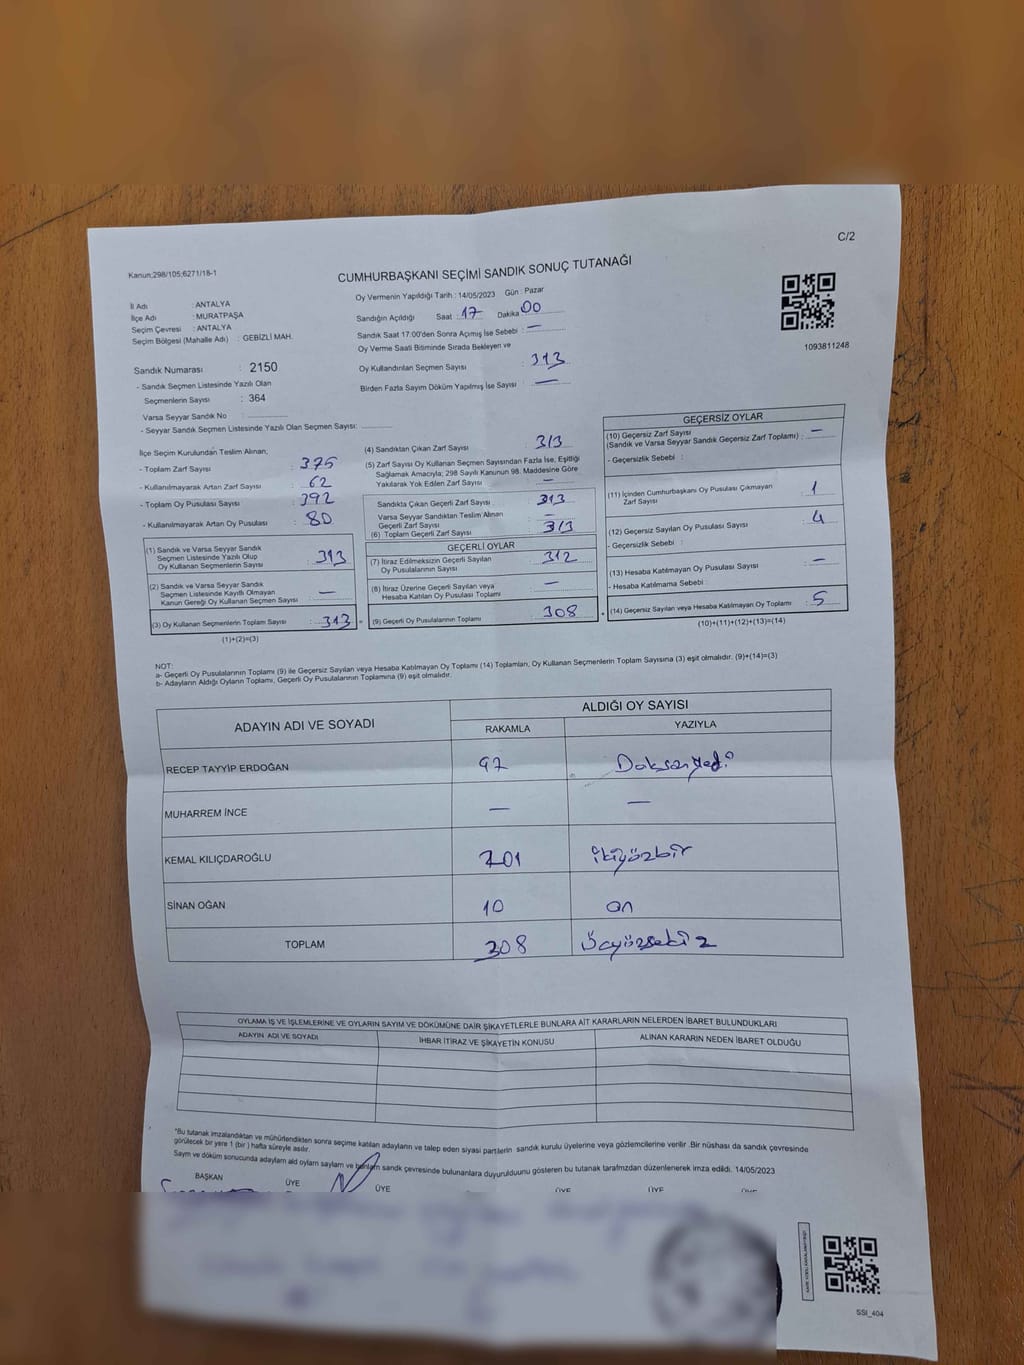 C/2
Kanun:298/105;6271/18-1
CUMHURBAŞKANI SEÇİMİ SANDIK SONUÇ TUTANAĞI
Oy Vermenin Yapıldığı Tarih : 14/05/2023 Gün : Pazar
İl Adı : ANTALYA
İlçe Adı : MURATPAŞA
Seçim Çevresi : ANTALYA
Seçim Bölgesi (Mahalle Adı) : GEBİZLİ MAH.
Sandığın Açıldığı Saat : 17 Dakika 00
Sandık Saat 17:00'den Sonra Açımış İse Sebebi : —
Oy Verme Saati Bitiminde Sırada Bekleyen ve
Oy Kullandırılan Seçmen Sayısı : 313
Birden Fazla Sayım Döküm Yapılmış İse Sayısı : —
1093811248
Sandık Numarası : 2150
- Sandık Seçmen Listesinde Yazılı Olan
Seçmenlerin Sayısı : 364
Varsa Seyyar Sandık No :
- Seyyar Sandık Seçmen Listesinde Yazılı Olan Seçmen Sayısı:
İlçe Seçim Kurulundan Teslim Alınan;
- Toplam Zarf Sayısı : 375
- Kullanılmayarak Artan Zarf Sayısı : 62
- Toplam Oy Pusulası Sayısı : 392
- Kullanılmayarak Artan Oy Pusulası : 80
(1) Sandık ve Varsa Seyyar Sandık
Seçmen Listesinde Yazılı Olup
Oy Kullanan Seçmenlerin Sayısı : 313
(2) Sandık ve Varsa Seyyar Sandık
Seçmen Listesinde Kayıtlı Olmayan
Kanun Gereği Oy Kullanan Seçmen Sayısı : —
(3) Oy Kullanan Seçmenlerin Toplam Sayısı : 313
(1)+(2)=(3)
(4) Sandıktan Çıkan Zarf Sayısı : 313
(5) Zarf Sayısı Oy Kullanan Seçmen Sayısından Fazla İse, Eşitliği
Sağlamak Amacıyla; 298 Sayılı Kanunun 98. Maddesine Göre
Yakılarak Yok Edilen Zarf Sayısı : —
Sandıkta Çıkan Geçerli Zarf Sayısı : 313
Varsa Seyyar Sandıktan Teslim Alınan
Geçerli Zarf Sayısı : —
(6) Toplam Geçerli Zarf Sayısı : 313
GEÇERLİ OYLAR
(7) İtiraz Edilmeksizin Geçerli Sayılan
Oy Pusulalarının Sayısı : 312
(8) İtiraz Üzerine Geçerli Sayılan veya
Hesaba Katılan Oy Pusulası Toplamı : —
= (9) Geçerli Oy Pusulalarının Toplamı : 308
GEÇERSİZ OYLAR
(10) Geçersiz Zarf Sayısı
(Sandık ve Varsa Seyyar Sandık Geçersiz Zarf Toplamı) : —
- Geçersizlik Sebebi :
(11) İçinden Cumhurbaşkanı Oy Pusulası Çıkmayan
Zarf Sayısı : 1
(12) Geçersiz Sayılan Oy Pusulası Sayısı : 4
- Geçersizlik Sebebi :
(13) Hesaba Katılmayan Oy Pusulası Sayısı : —
- Hesaba Katılmama Sebebi :
+ (14) Geçersiz Sayılan veya Hesaba Katılmayan Oy Toplamı : 5
(10)+(11)+(12)+(13)=(14)
NOT:
a- Geçerli Oy Pusulalarının Toplamı (9) ile Geçersiz Sayılan veya Hesaba Katılmayan Oy Toplamı (14) Toplamları, Oy Kullanan Seçmenlerin Toplam Sayısına (3) eşit olmalıdır. (9)+(14)=(3)
b- Adayların Aldığı Oyların Toplamı, Geçerli Oy Pusulalarının Toplamına (9) eşit olmalıdır.
ADAYIN ADI VE SOYADI ALDIĞI OY SAYISI
RAKAMLA YAZIYLA
RECEP TAYYİP ERDOĞAN 97 Doksanyedi
MUHARREM İNCE — —
KEMAL KILIÇDAROĞLU 201 ikiyüzbir
SİNAN OĞAN 10 on
TOPLAM 308 Üçyüzsekiz
OYLAMA İŞ VE İŞLEMLERİNE VE OYLARIN SAYIM VE DÖKÜMÜNE DAİR ŞİKAYETLERLE BUNLARA AİT KARARLARIN NELERDEN İBARET BULUNDUKLARI
ADAYIN ADI VE SOYADI İHBAR İTİRAZ VE ŞİKAYETİN KONUSU ALINAN KARARIN NEDEN İBARET OLDUĞU
*Bu tutanak imzalandıktan ve mühürlendikten sonra seçime katılan adayların ve talep eden siyasi partilerin sandık kurulu üyelerine veya gözlemcilerine verilir .Bir nüshası da sandık çevresinde
görülecek bir yere 1 (bir ) hafta süreyle asılır.
Sayım ve döküm sonucunda adayların aldı oyların sayların ve bunların sandık çevresinde bulunanlara duyurulduunu gösteren bu tutanak tarafımzdan düzenlenerek imza edildi. 14/05/2023
BAŞKAN ÜYE ÜYE ÜYE ÜYE ÜYE
SSI_404